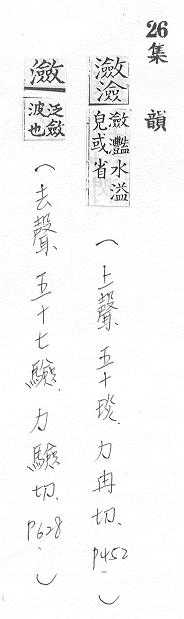 26集韻
瀲澰 瀲灩水溢皃或省 (上聲、五十琰、力冉切、P452)
瀲 泛瀲波也 (去聲、五十七驗、力驗切、P628)